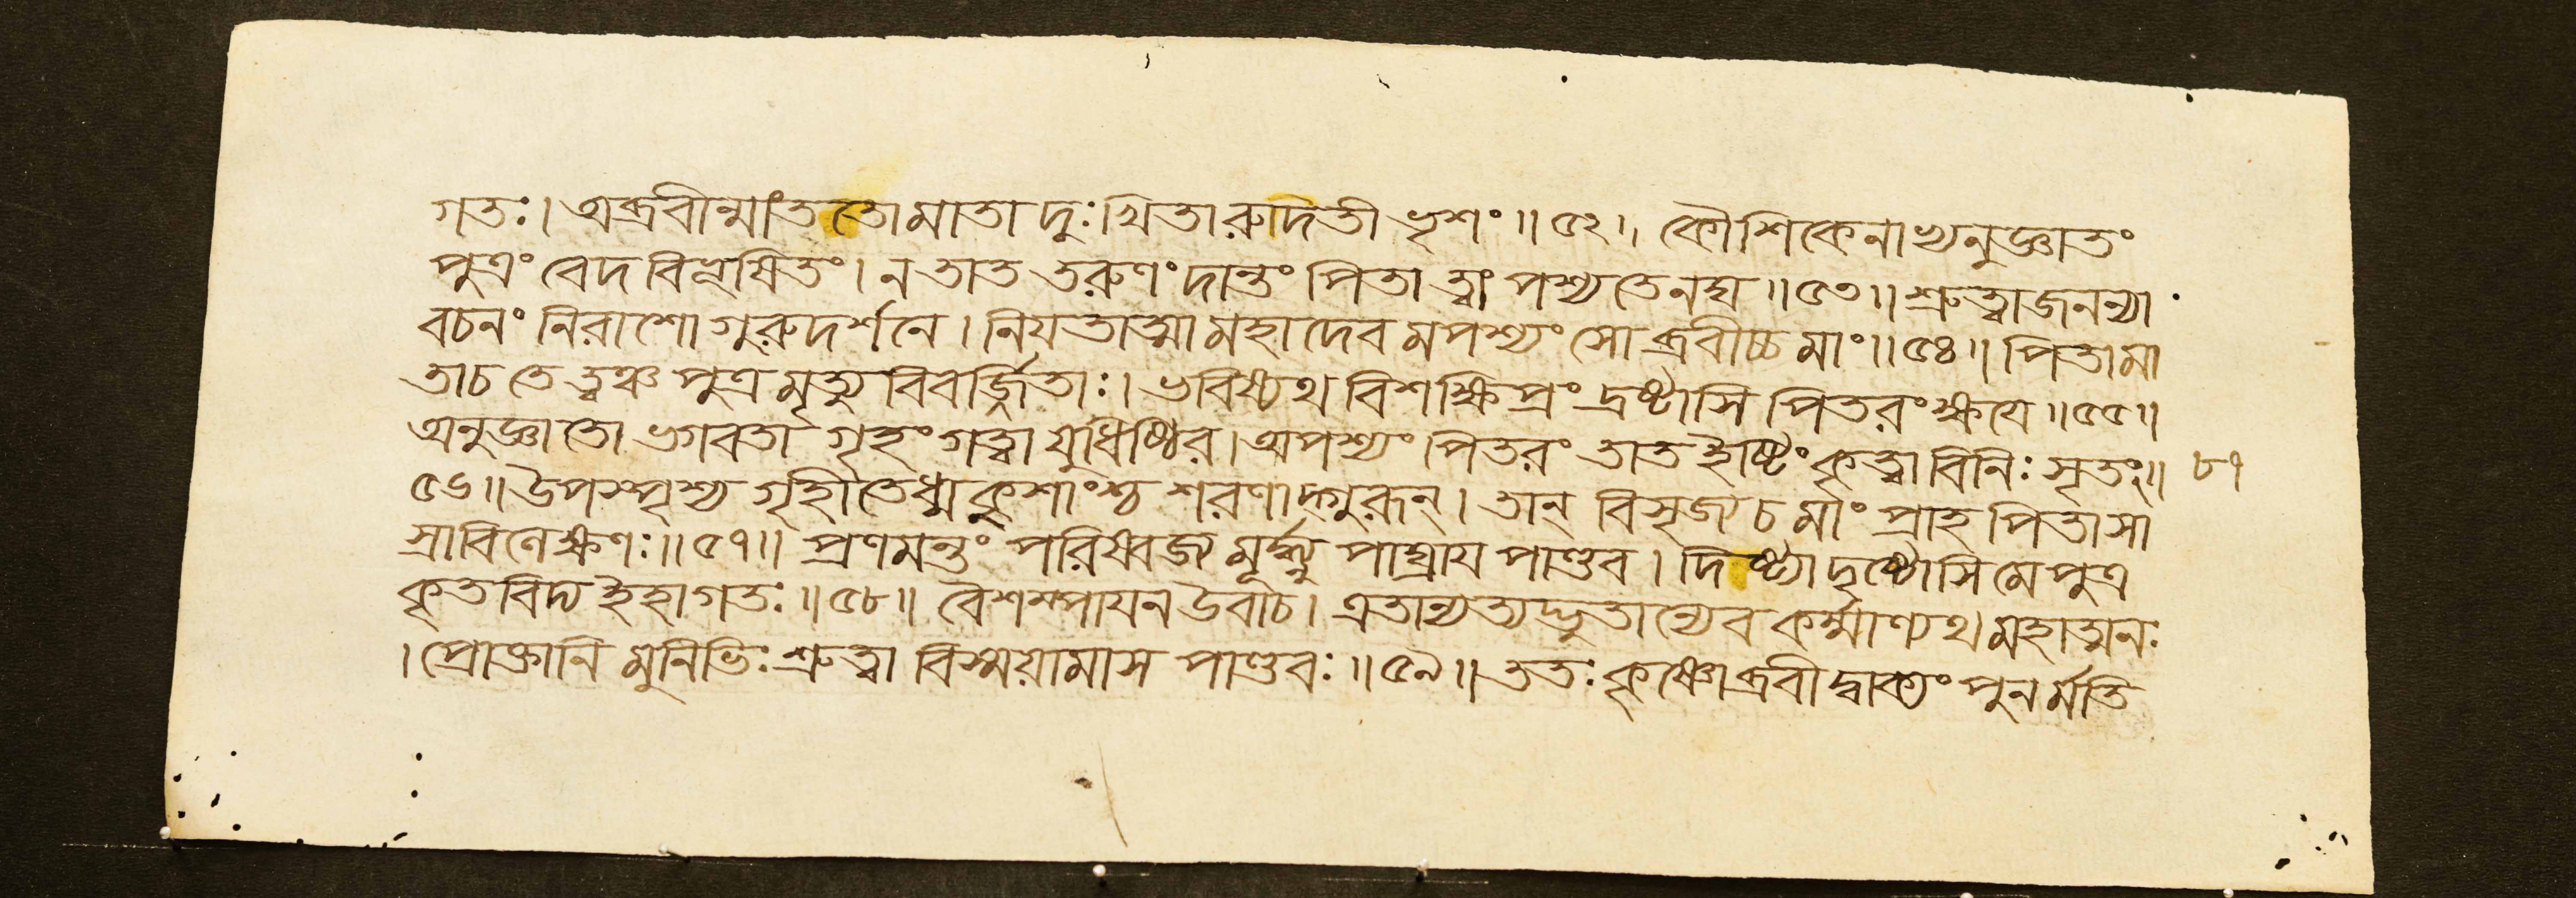 গতঃ। অব্রবীন্মাং ততো মাতা দুঃখিতা রুদতী ভৃশং॥৫২॥ কৌশিকেনাভ্যনুজ্ঞাতং
পুত্রং বেদ বিভূষিতং। ন তাত তরুণং দান্তং পিতা ত্বাং পশ্যতেনঘ॥৫৩॥ শ্রুত্বা জনন্যা
বচনং নিরাশো গুরুদর্শনে। নিয়তাত্মা মহাদেবমপশ্যং সোব্রবীচ্চ মাং॥৫৪॥ পিতা মা
তা চ তে ত্বঞ্চ পুত্র মৃত্যু বিবর্জ্জিতাঃ। ভবিষ্যথ বিশ ক্ষিপ্রং দ্রষ্টাসি পিতরং ক্ষয়ে॥৫৫॥
অনুজ্ঞাতো ভগবতা গৃহং গত্বা যুধিষ্ঠির। অপশ্যং পিতরং তাত ইষ্টিং কৃত্বা বিনিঃসৃতং॥ ৮৭
৫৬॥ উপস্পৃশ্য গৃহীতেধ্ম কুশাংশ্চ শরণাদ্গুরূন্। তান্ বিসৃজ্য চ মাং প্রাহ পিতা সা
স্রাবিণেক্ষণঃ॥৫৭॥ প্রণমন্তং পরিষ্বজ্য মূর্দ্ধ্ন্যুপাঘ্রায় পাণ্ডব। দিষ্ট্যা দৃষ্টোসি মে পুত্র
কৃতবিদ্য ইহাগতঃ॥৫৮॥ বৈশম্পায়ন উবাচ। এতান্যত্যদ্ভুতান্যেব কর্ম্মাণ্যথ মহাত্মনঃ
। প্রোক্তানি মুনিভিঃ শ্রুত্বা বিস্ময়ামাস পাণ্ডবঃ॥৫৯॥ ততঃ কৃষ্ণোব্রবীদ্বাক্যং পুনর্মতি